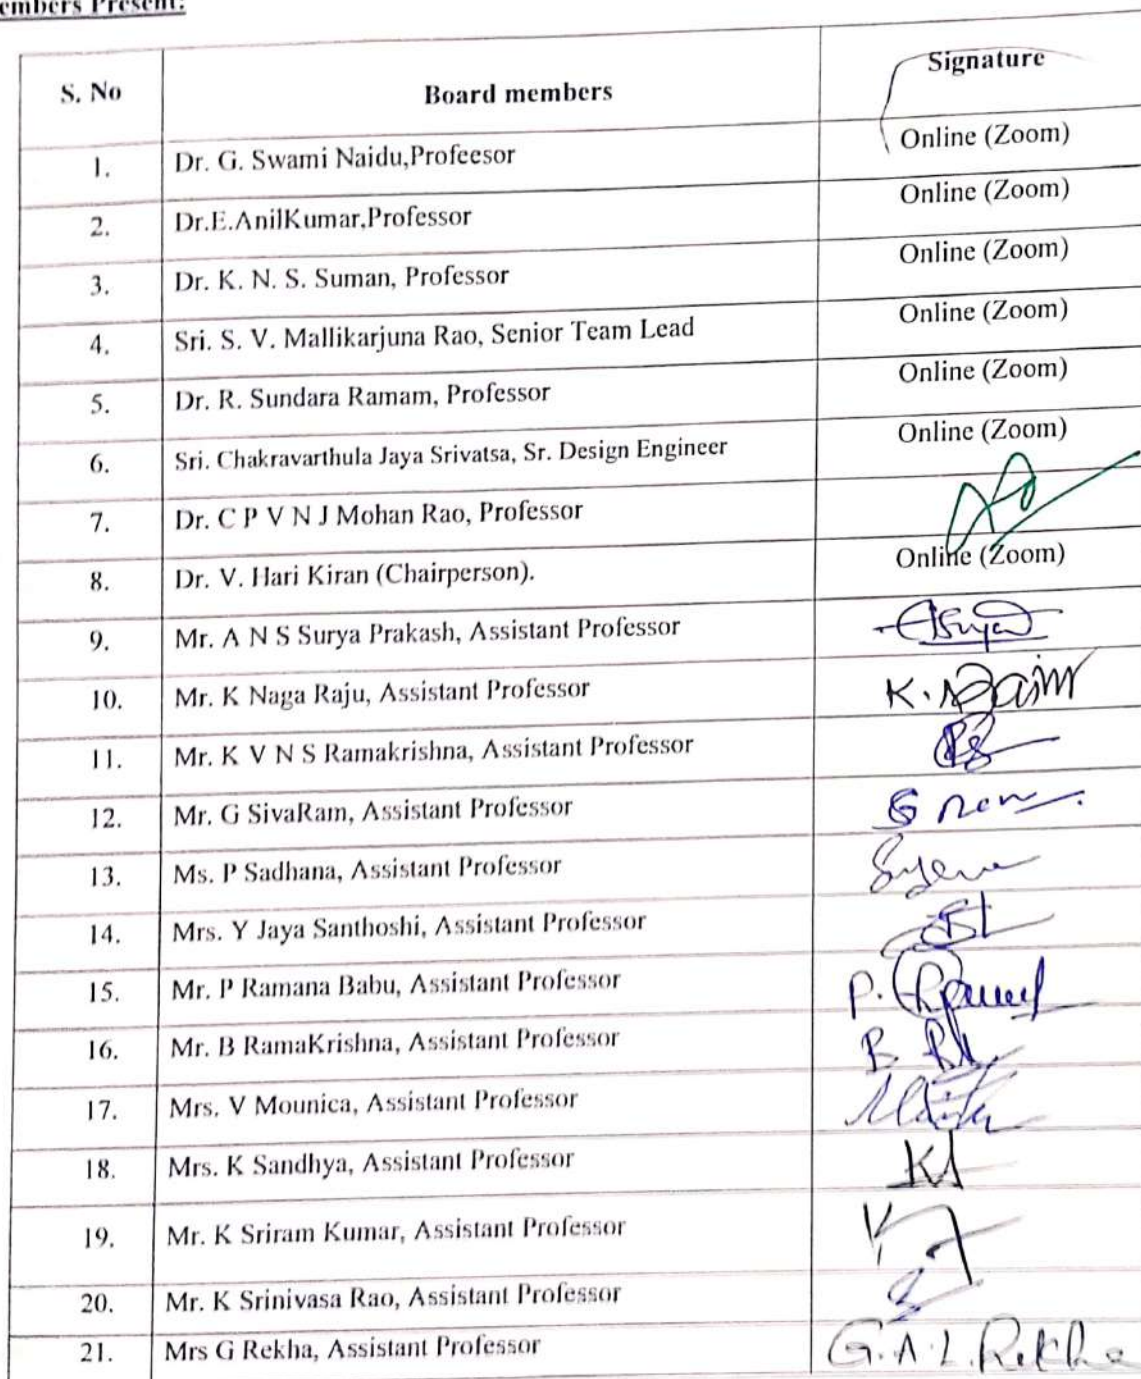 embers Present:
S. No Board members Signature
1. Dr. G. Swami Naidu,Profeesor Online (Zoom)
2. Dr.E.AnilKumar,Professor Online (Zoom)
3. Dr. K. N. S. Suman, Professor Online (Zoom)
4. Sri. S. V. Mallikarjuna Rao, Senior Team Lead Online (Zoom)
5. Dr. R. Sundara Ramam, Professor Online (Zoom)
6. Sri. Chakravarthula Jaya Srivatsa, Sr. Design Engineer Online (Zoom)
7. Dr. C P V N J Mohan Rao, Professor
8. Dr. V. Hari Kiran (Chairperson). Online (Zoom)
9. Mr. A N S Surya Prakash, Assistant Professor
10. Mr. K Naga Raju, Assistant Professor
11. Mr. K V N S Ramakrishna, Assistant Professor
12. Mr. G SivaRam, Assistant Professor
13. Ms. P Sadhana, Assistant Professor
14. Mrs. Y Jaya Santhoshi, Assistant Professor
15. Mr. P Ramana Babu, Assistant Professor
16. Mr. B RamaKrishna, Assistant Professor
17. Mrs. V Mounica, Assistant Professor
18. Mrs. K Sandhya, Assistant Professor
19. Mr. K Sriram Kumar, Assistant Professor
20. Mr. K Srinivasa Rao, Assistant Professor
21. Mrs G Rekha, Assistant Professor G.A.L.Rekha